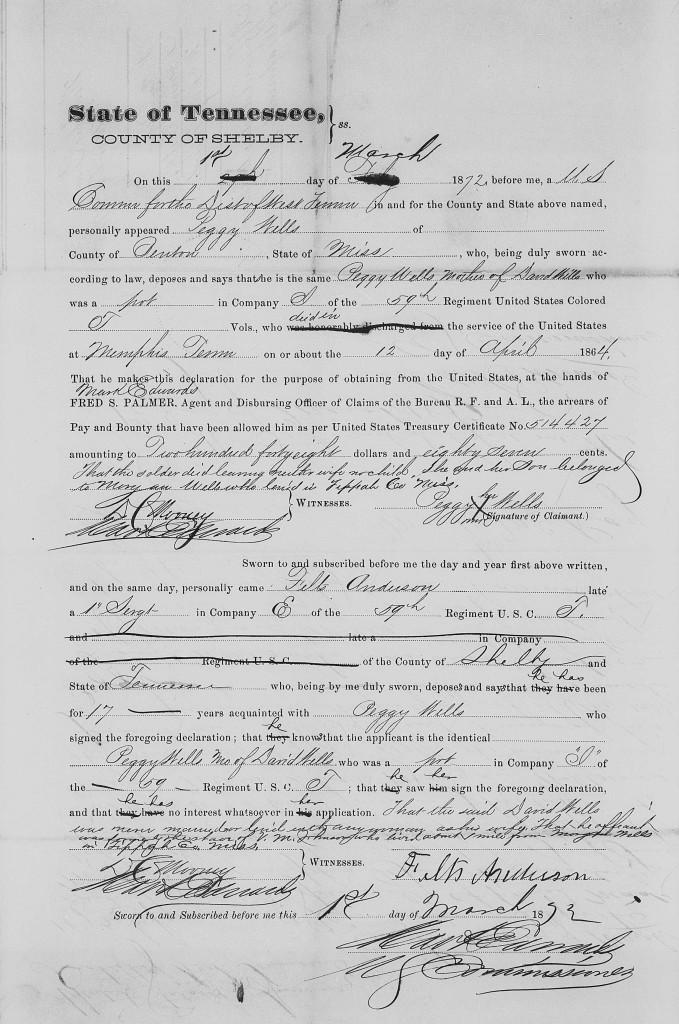 State of Tennessee, } ss.
COUNTY OF SHELBY.
1st March
On this day of 1872, before me, a U S
Commr for the Dist of West Tenne in and for the County and State above named,
personally appeared Peggy Wells of
County of Benton, State of Miss, who, being duly sworn ac-
cording to law, deposes and says that she is the same Peggy Wells, Mother of David Wells who
was a pvt in Company I of the 59th Regiment United States Colored
died in
T Vols., who was honorably discharged from the service of the United States
at Memphis Tenn on or about the 12 day of April 1864,
That he makes this declaration for the purpose of obtaining from the United States, at the hands of
Mark Edwards
FRED S. PALMER, Agent and Disbursing Officer of Claims of the Bureau R. F. and A. L., the arrears of
Pay and Bounty that have been allowed him as per United States Treasury Certificate No. 514427
amounting to Two hundred forty eight dollars and eighty seven cents.
That the solder died leaving neither wife no child. She and her Son belonged
to Mary an Wells who lived in Tippah Co Miss.
her
Mooney } WITNESSES. Peggy X Wells
Mark Edwards mark (Signature of Claimant.)
Sworn to and subscribed before me the day and year first above written,
and on the same day, personally came Felts Anderson late
a 1st Sergt in Company E of the 59th Regiment U. S. C. T.
and late a in Company
of the Regiment U. S. C. of the County of Shelby and
he has
State of Tennessee who, being by me duly sworn, depose and say that they have been
for 17 years acquainted with Peggy Wells who
he
signed the foregoing declaration; that they know that the applicant is the identical
Peggy Wells Mo of David Wells who was a pvt in Company "I" of
he her
the 59 Regiment U. S. C. T; that they saw him sign the foregoing declaration,
he has her
and that they have no interest whatsoever in his application. That the said David Wells
was never married or lived with any woman as his wife. That he affiant
was Johnson who lived about 1 mile from Wells
in Tippah Co. Miss.
Mooney } WITNESSES. Felts Anderson
Mark Edwards
Sworn to and Subscribed before me this 1st day of March 1872
Mark Edwards
U S Commissioner